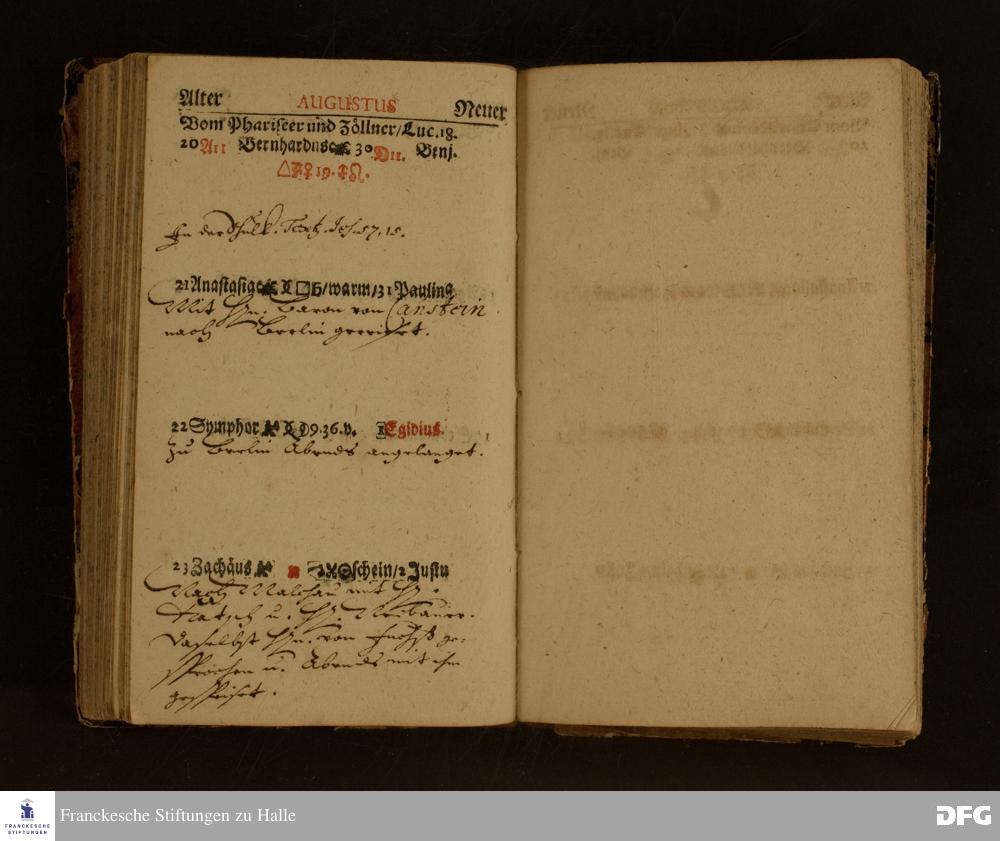 Alter AUGUSTUS Neuer
Vom Phariseer und Zöllner/Luc.18.
20 A11 Bernhardus 30 D11. Benj.
△♀19.
In der Schulk. Text. Jes. 57, 15.
21 Anastasius ☾□♄/warm/31 Paulinq
Mit Hn. Baron von Canstein
nach Berlin gereiset.
22 Symphor 9.36.v. 1 Egidius.
zu Berlin Abends angelanget.
23 Zachäus schein/2 Justu
Nach Malchau mit H.
u. H. Neubauer.
Daselbst Hn. von Fuchß ge-
sprochen u. Abends mit ihm
gespeiset.
FRANCKESCHE
STIFTUNGEN
Franckesche Stiftungen zu Halle
DFG